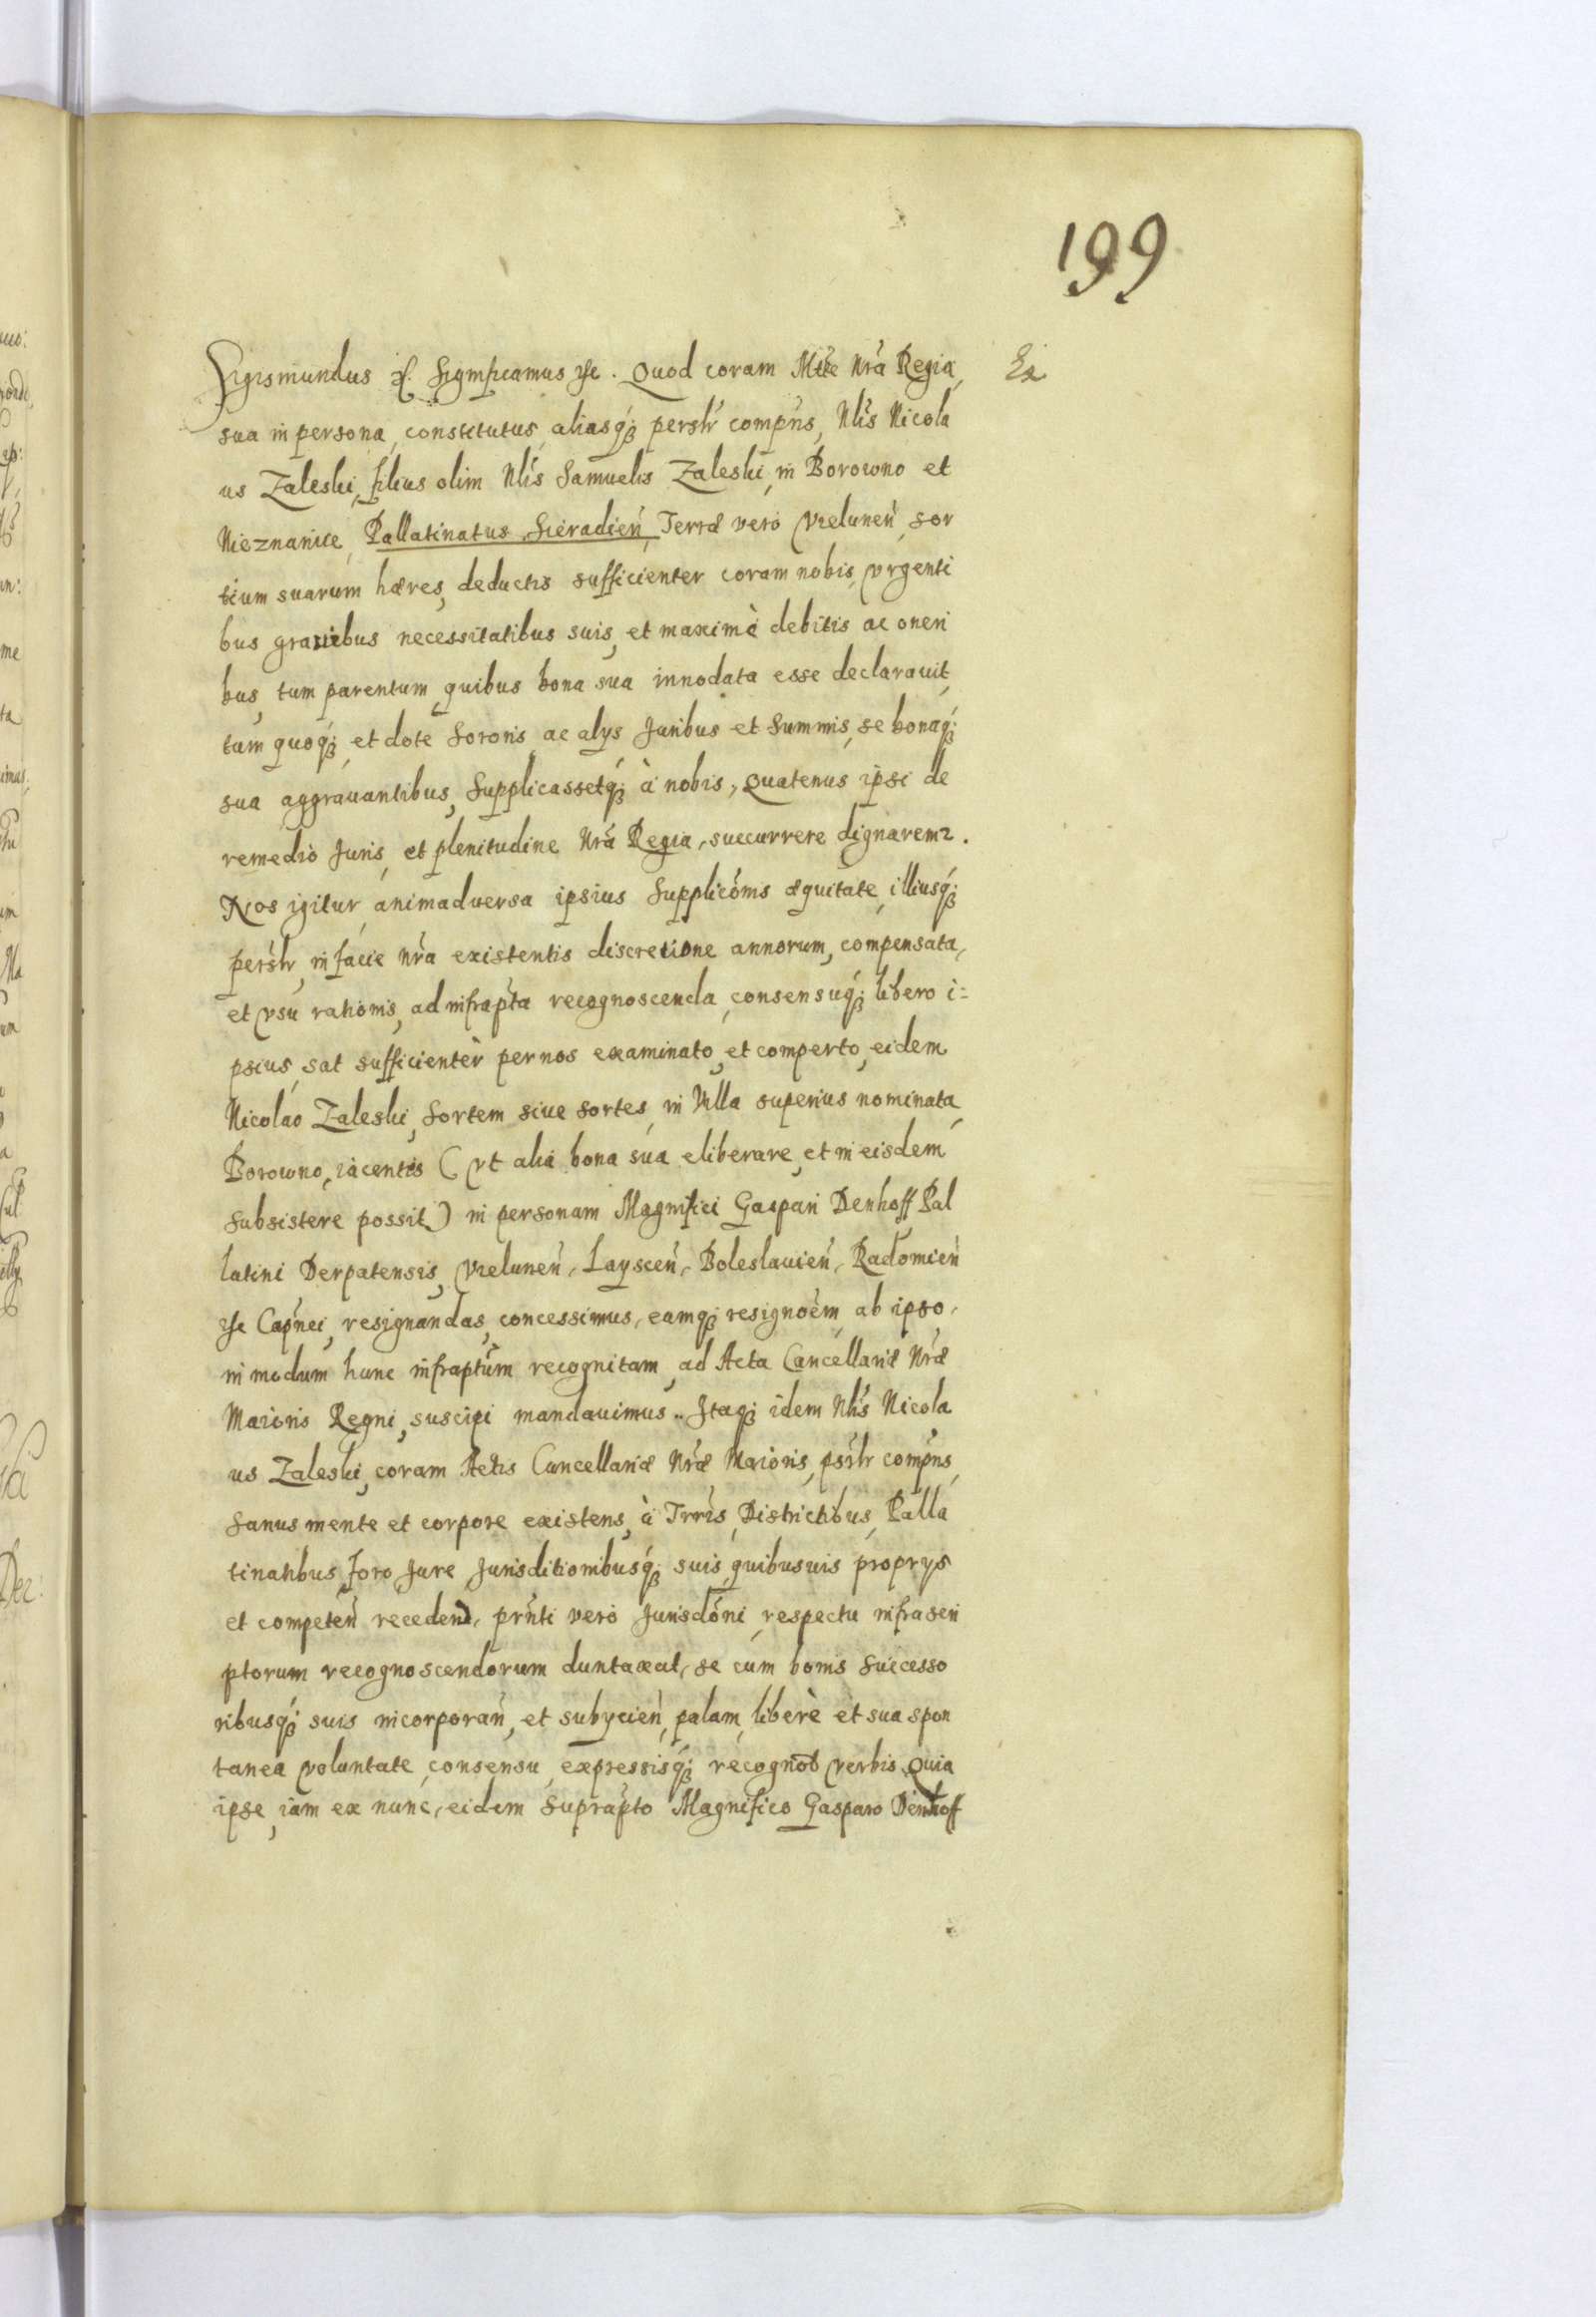 199
Sigismundus etc. Significamus etc. Quod coram Mtte Nrã Regia,
sua in persona, constitutus, aliasq; persłr compñs, Nlis Nicola
us Zaleski, filius olim Nlis Samuelis Zaleski, in Borowno et
Nieznanice, Pallatinatus Sieradień, Terræ vero Vieluneń, sor
tium suarum hæres, deductis sufficienter coram nobis, vrgenti
bus grauibus necessitatibus suis, et maximè debitis ac oneri
bus, tum parentum, quibus bona sua innodata esse declarauit,
tum quoq; et dote sororis ac alys Juribus et summis, se bonaq;
sua aggrauantibus, Supplicassetq; à nobis, Quatenus ipsi de
remedio Juris, et plenitudine Nrã Regia, succurrere dignarem2.
Nos igitur, animaduersa ipsius Supplicõnis æquitate, illiusq;
persłr, in facie nrã existentis discretione annorum, compensata,
et vsu rationis, ad infrapta recognoscenda, consensuq; libero i=
psius, sat sufficienter per nos examinato, et comperto, eidem
Nicolao Zaleski, Sortem siue sortes, in Villa superius nominata
Borowno, iacentis (vt alia bona sua eliberare, et in eisdem
subsistere possit) in personam Magnifici Gaspari Denhoff Pal
latini Derpatensis, Vieluneń, Laysceń, Boleslauień, Radomień
etc Capnei, resignandas, concessimus, eamq; resignoẽm, ab ipso,
in modum hunc infraptum recognitam, ad Acta Cancellariæ Nræ
Maioris Regni, suscipi mandauimus.. Itaq; idem Nlis Nicola
us Zaleski, coram Actis Cancellariæ Nræ Maioris, psrłr compñs,
sanus mente et corpore existens, à Trris, Districtibus, Palla
tinatibus, foro Jure Jurisditionibusq; suis, quibusuis proprys
et competeń recedeñ, prñti vero Jurisdõni, respectu infrascri
ptorum recognoscendorum duntaxat, se cum bonis successo
ribusq; suis incorporań, et subycień, palam, liberè et sua spon
tanea voluntate, consensu, expressisq; recognot verbis, Quia
ipse, iam ex nunc, eidem suprapto Magnifico Gasparo Denhoff